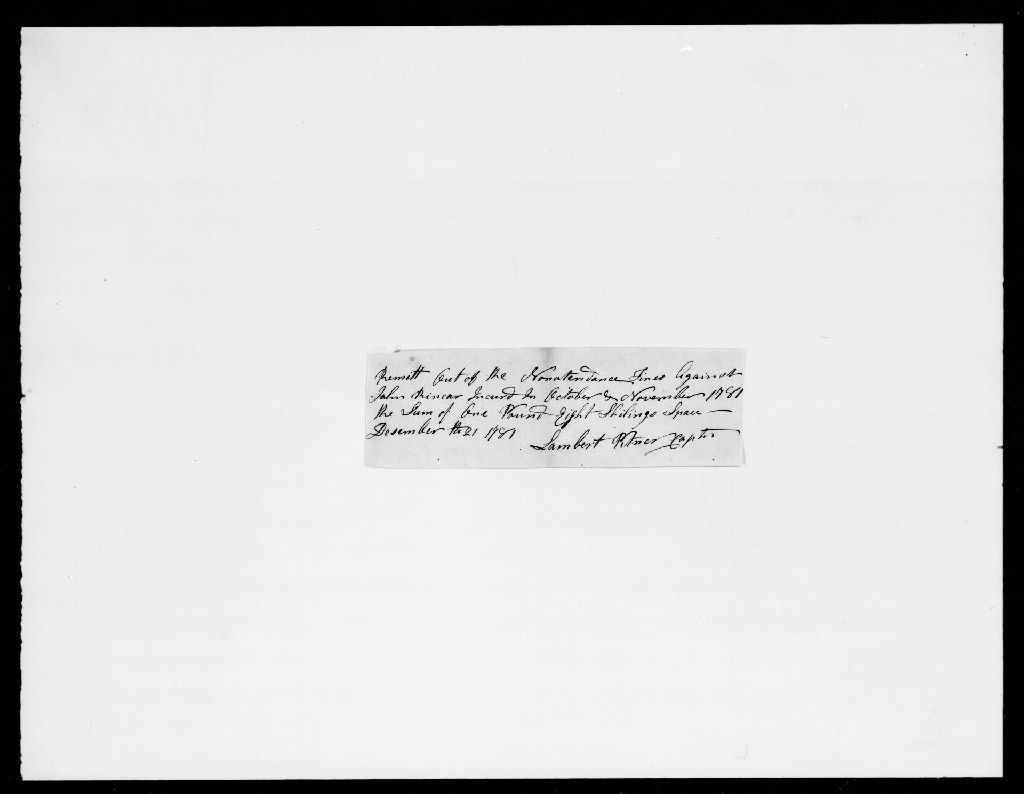 Remitt Out of the Nonatendance Fines Against
John Rincar Incurd In October & November 1781
the Sum of One Pound Eight Shilings Spau
Desember th 21 1781
Lambert Rtner Captn